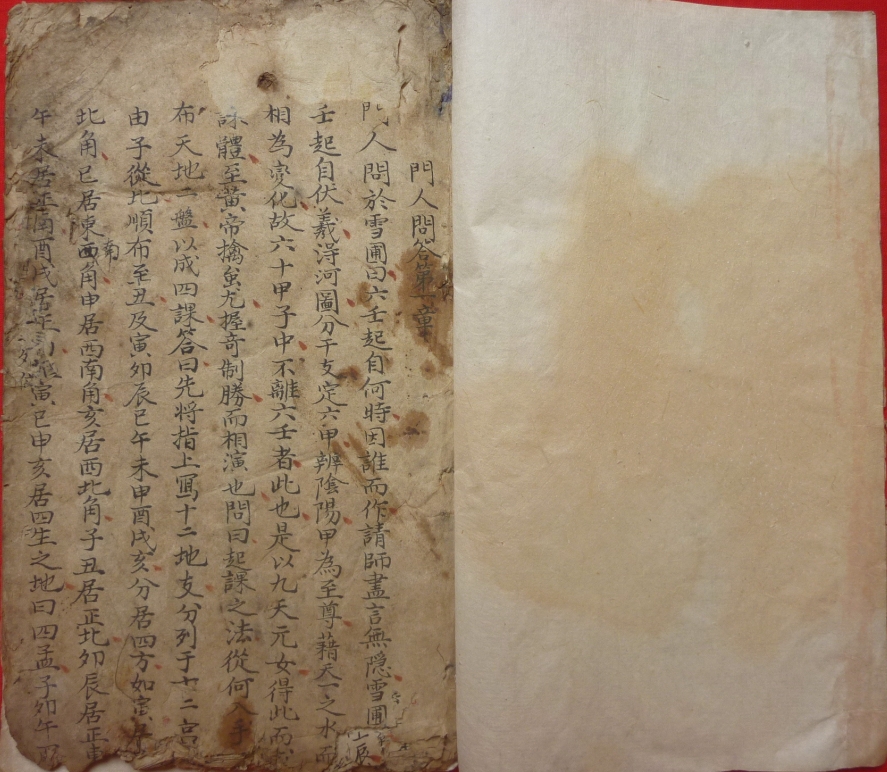 門人問答第一章
門人問於雪圃曰六壬起自何時因誰而作請師盡言無隱雪圃
壬起自伏羲淂河圖分干支定六甲辨陰陽甲為至尊藉天一之水而
相為變化故六十甲子中不離六壬者此也是以九天元女得此而
課體至黃帝擒蚩尤握奇制勝而相演也問曰起課之法從何入手
布天地二盤以成四課答曰先將指上寫十二地支分列于十二宫
由子從北順布至丑及寅卯辰巳午未申酉戌亥分居四方如寅居
北角巳居東西角申居西南角亥居西北角子丑居正北卯辰居正東
南
午未居正南酉戌居正寅巳申亥居四生之地曰四孟子卯午